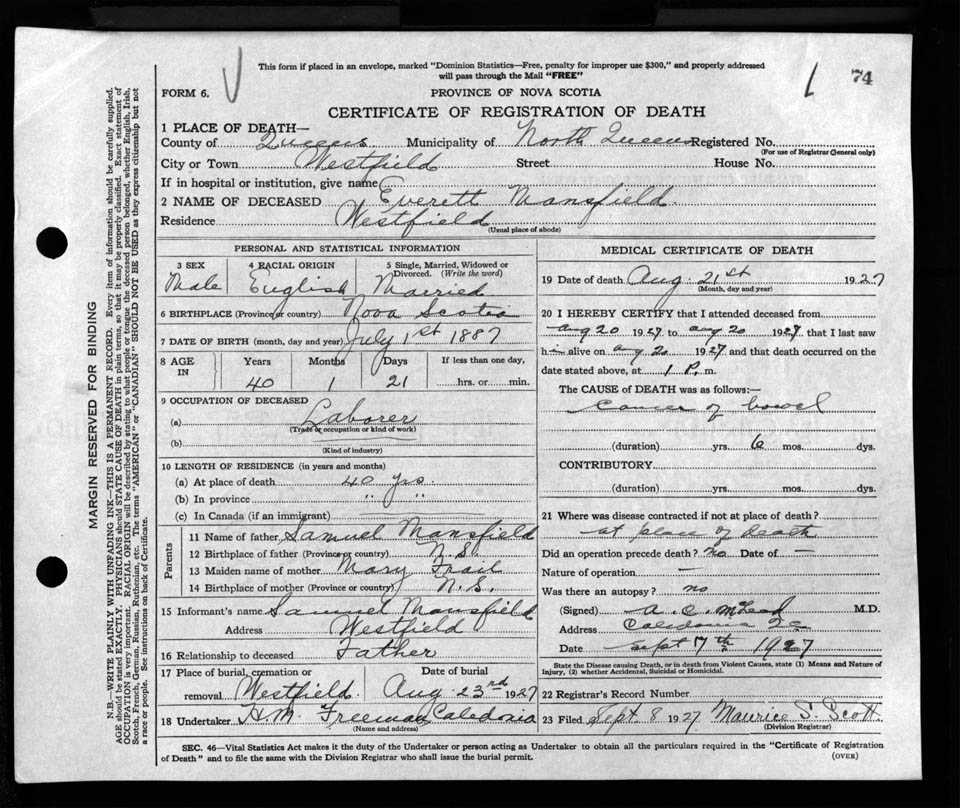 This form if placed in an envelope, marked "Dominion Statistics—Free, penalty for improper use $300," and properly addressed
will pass through the Mail "FREE"
74
FORM 6.
PROVINCE OF NOVA SCOTIA
CERTIFICATE OF REGISTRATION OF DEATH
1 PLACE OF DEATH—
County of Queens Municipality of North Queens Registered No.
(For use of Registrar General only)
City or Town Westfield Street House No.
If in hospital or institution, give name
2 NAME OF DECEASED Everett Mansfield.
Residence Westfield
(Usual place of abode)
PERSONAL AND STATISTICAL INFORMATION
3 SEX 4 RACIAL ORIGIN 5 Single, Married, Widowed or
Divorced. (Write the word)
Male English Married
6 BIRTHPLACE (Province or country) Nova Scotia
7 DATE OF BIRTH (month, day and year) July 1st 1887
8 AGE IN Years Months Days If less than one day,
40 1 21 hrs. or min.
9 OCCUPATION OF DECEASED
(a) Laborer
(Trade or occupation or kind of work)
(b)
(Kind of industry)
10 LENGTH OF RESIDENCE (in years and months)
(a) At place of death 40 yrs.
(b) In province " "
(c) In Canada (if an immigrant)
Parents
11 Name of father Samuel Mansfield
12 Birthplace of father (Province or country) N.S.
13 Maiden name of mother Mary Frail
14 Birthplace of mother (Province or country) N.S.
15 Informant's name Samuel Mansfield
Address Westfield
16 Relationship to deceased Father
17 Place of burial, cremation or Date of burial
removal Westfield. Aug. 23rd 1927
18 Undertaker H.M. Freeman Caledonia
(Name and address)
MEDICAL CERTIFICATE OF DEATH
19 Date of death Aug. 21st 1927
(Month, day and year)
20 I HEREBY CERTIFY that I attended deceased from
aug 20 1927 to aug 20 1927 that I last saw
him alive on aug 20 1927 and that death occurred on the
date stated above, at 1 P. m.
The CAUSE of DEATH was as follows:—
cancer of bowel
(duration) yrs. 6 mos. dys.
CONTRIBUTORY
(duration) yrs. mos. dys.
21 Where was disease contracted if not at place of death?
at place of death
Did an operation precede death? no Date of —
Nature of operation —
Was there an autopsy? no
(Signed) A. C. McLeod M.D.
Address Caledonia
Date Sept 7th 1927
State the Disease causing Death, or in death from Violent Causes, state (1) Means and Nature of
Injury, (2) whether Accidental, Suicidal or Homicidal.
22 Registrar's Record Number
23 Filed Sept. 8 1927. Maurice S. Scott.
(Division Registrar)
SEC. 46—Vital Statistics Act makes it the duty of the Undertaker or person acting as Undertaker to obtain all the particulars required in the "Certificate of Registration
of Death" and to file the same with the Division Registrar who shall issue the burial permit. (OVER)
MARGIN RESERVED FOR BINDING
N.B.—WRITE PLAINLY WITH UNFADING INK—THIS IS A PERMANENT RECORD. Every item of information should be carefully supplied.
AGE should be stated EXACTLY. PHYSICIANS should STATE CAUSE OF DEATH in plain terms, so that it may be properly classified. Exact statement of
OCCUPATION is very important. RACIAL ORIGIN will be described by stating to what people or tongue the deceased person belonged, whether English, Irish,
Scotch, French, German, Russian, Ruthenian, etc. The terms "AMERICAN" or "CANADIAN" SHOULD NOT BE USED as they express citizenship but not
a race or people. See instructions on back of Certificate.